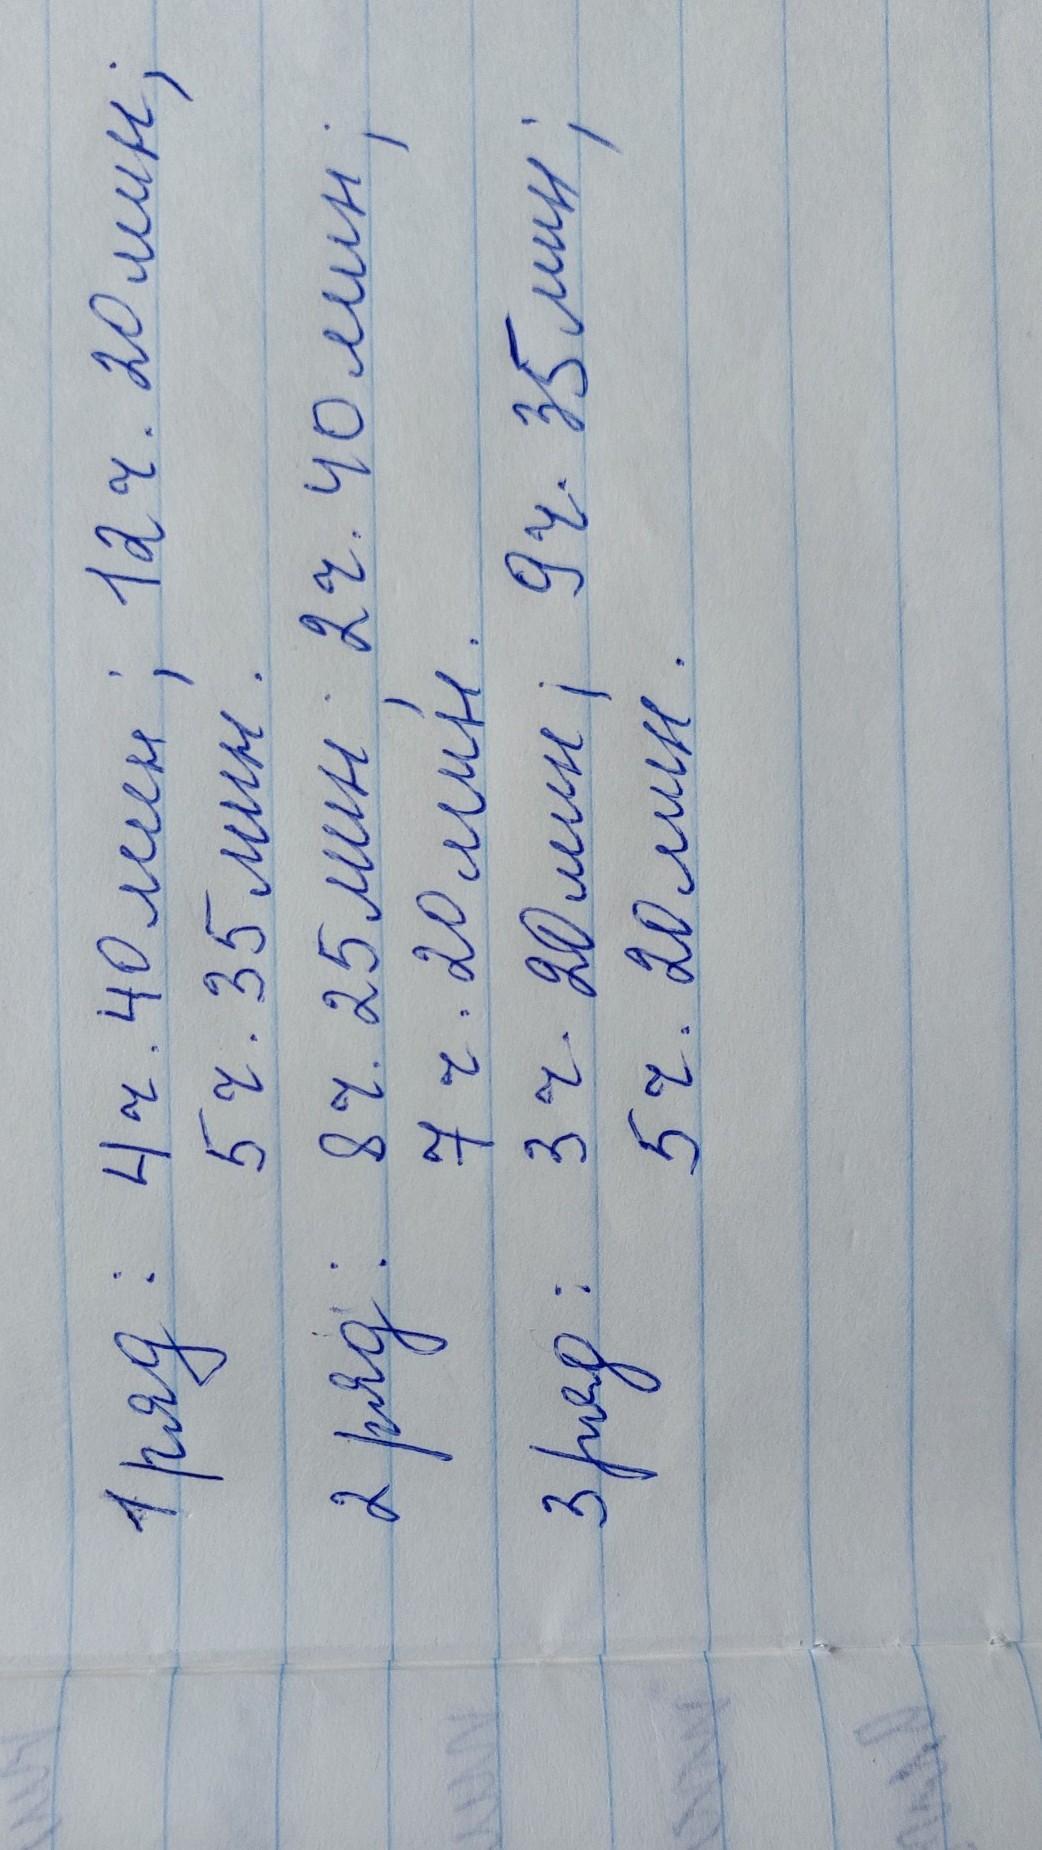 1 ряд: 4ч. 40мин; 12ч. 20мин;
5ч. 35мин.
2 ряд: 8ч. 25мин; 2ч. 40мин;
7ч. 20мин.
3 ряд: 3ч. 20мин; 9ч. 35мин;
5ч. 20мин.